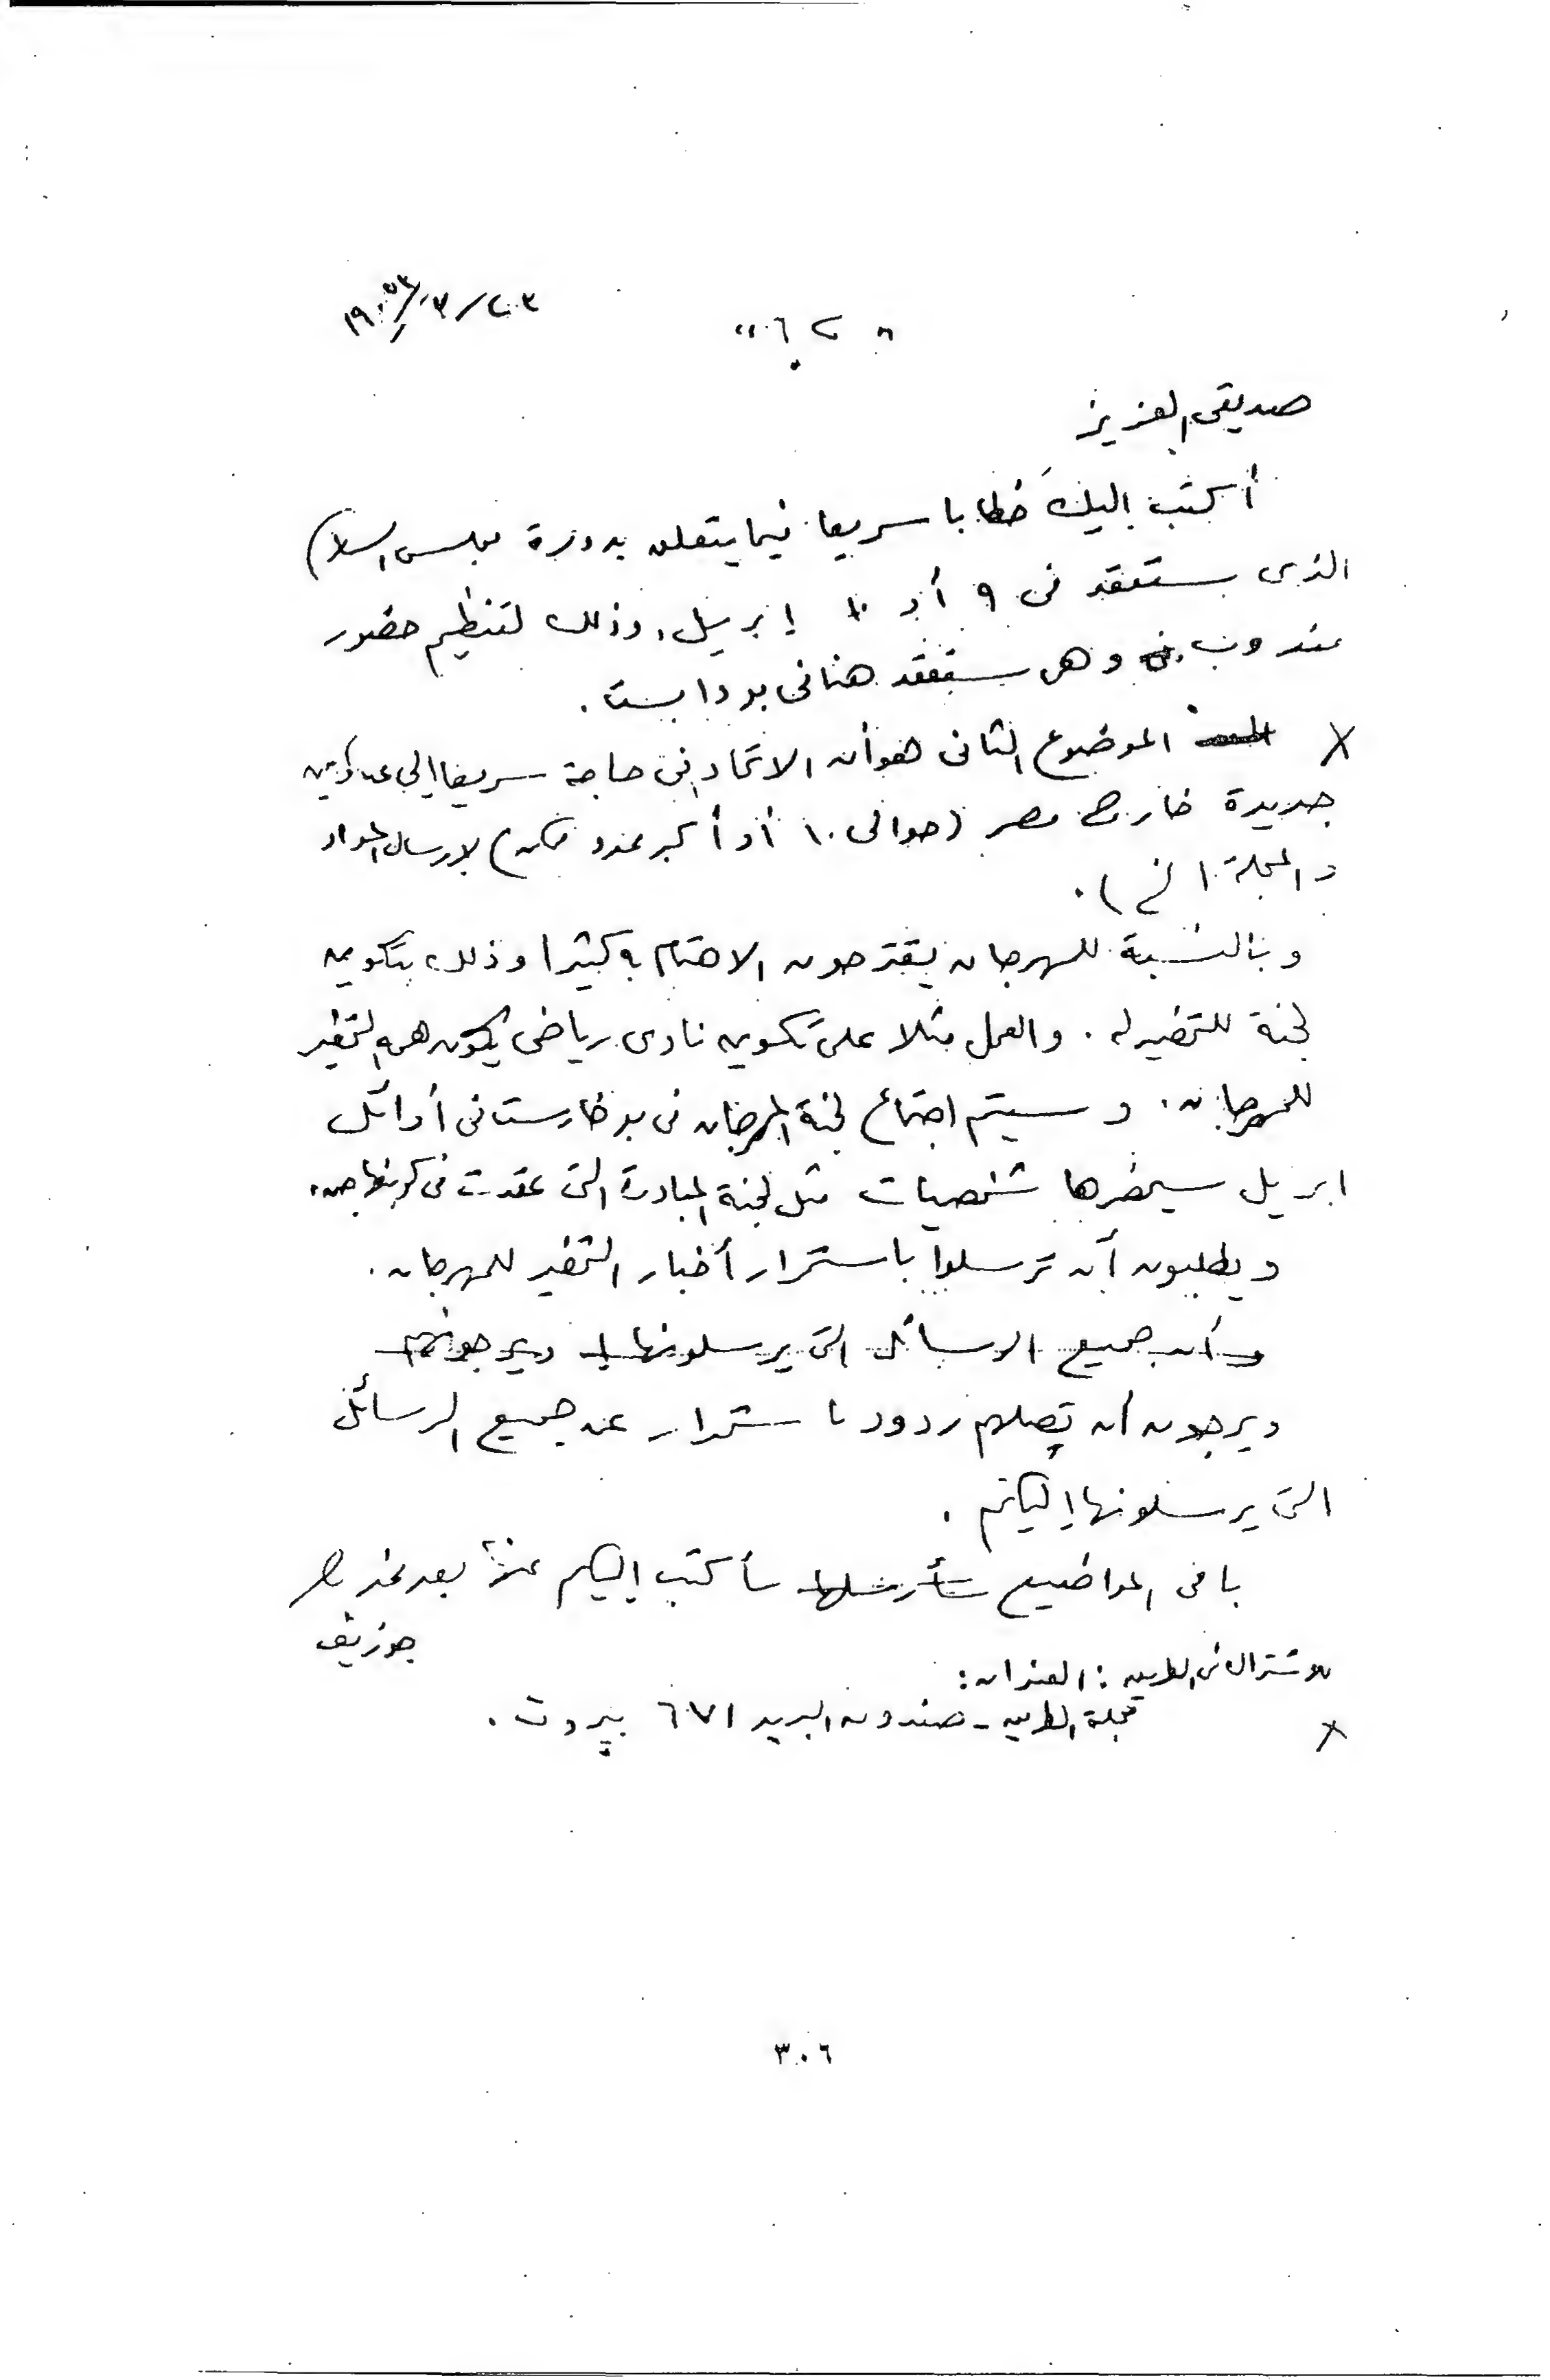 ١٩٥٣/٣/٢٣
" ٢٦ "
صديقى العزيز
أكتب إليك خطابا سريعا فيما يتعلق بدورة مجلس السلام
الذى ستعقد فى ٩ أو ١٠ إبريل، وذلك لتنظيم حضور
مندوب وهى ستعقد هنا فى بودابست.
× الموضوع الثانى هو أن الاتحاد فى حاجة سريعا إلى عناوين
جديدة خارج مصر (حوالى ١٠ أو أكبر عدد ممكن) لإرسال المواد
والمجلة الخ).
وبالنسبة للمهرجان يقترحون الاهتمام به كثيرا وذلك بتكوين
لجنة للتحضير له. والعمل مثلا على تكوين نادى رياضى يكون همه التحضير
للمهرجان. وسيتم اجتماع لجنة المهرجان فى بوخارست فى أوائل
ابريل سيحضرها شخصيات مثل لجنة المبادرة التى عقدت فى كوبنهاجن.
ويطلبون أن ترسلوا باستمرار أخبار التحضير للمهرجان.
وأن جميع الرسائل التى يرسلونها ويرجونهم
ويرجون أن تصلهم ردود باستمرار عن جميع الرسائل
التى يرسلونها إليكم.
باقى المواضيع سأرسلها سأكتب إليكم عنها بعد غد
جوزيف
للاشتراك فى الطريق: العنوان:
× مجلة الطريق - صندوق البريد ٦٧١ بيروت.
٣٠٦